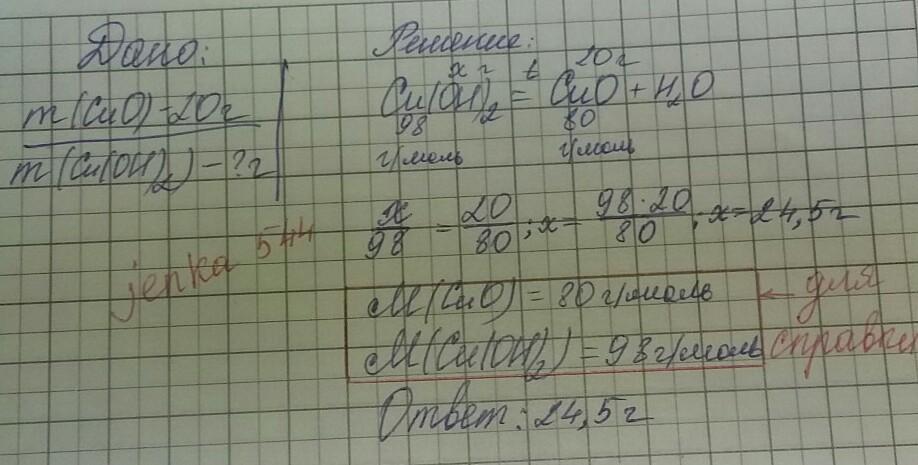 Дано:
m(CuO)-20г
m(Cu(OH)₂)-?г
Решение:
x г t 20г
Cu(OH)₂ = CuO + H₂O
98 80
г/моль г/моль
x/98 = 20/80; x = 98·20/80; x = 24,5г
jepka 544
M(CuO) = 80 г/моль ← для
M(Cu(OH)₂) = 98 г/моль справки
Ответ: 24,5г